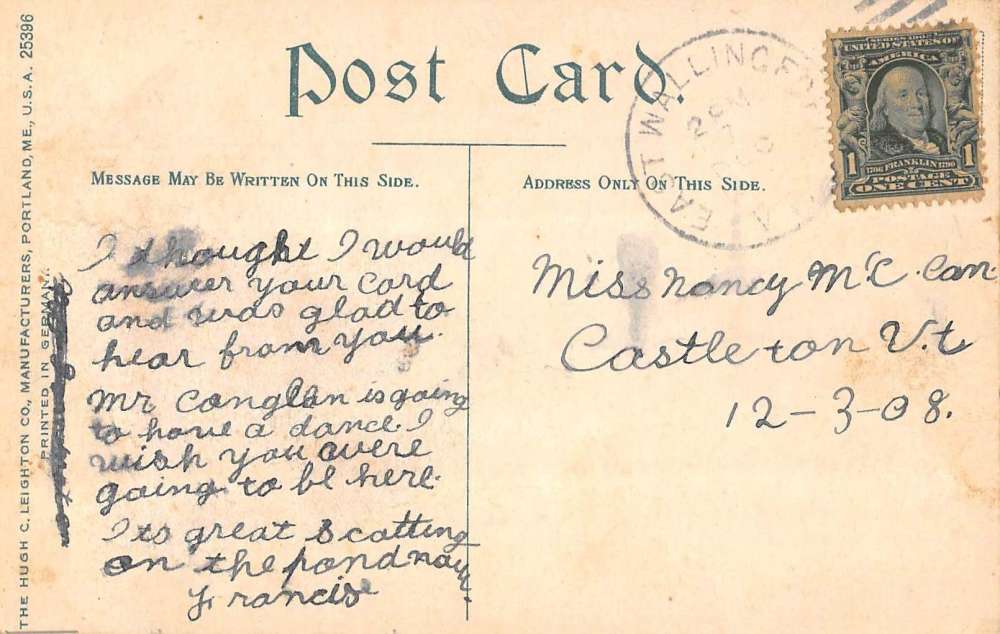 THE HUGH C. LEIGHTON CO., MANUFACTURERS, PORTLAND, ME., U.S.A. 25396
PRINTED IN GERMANY.
Post Card.
MESSAGE MAY BE WRITTEN ON THIS SIDE.
I thought I would
answer your card
and was glad to
hear from you.
Mr Conglan is going
to have a dance. I
wish you were
going to be here.
Its great Scatting
on the pond now.
Francis
ADDRESS ONLY ON THIS SIDE.
EAST WALLINGF
2 PM
SERIES 1902
UNITED STATES OF
AMERICA
1706 FRANKLIN 1790
1 POSTAGE 1
ONE CENT
Miss Nancy McCan
Castleton V.t
12-3-08.